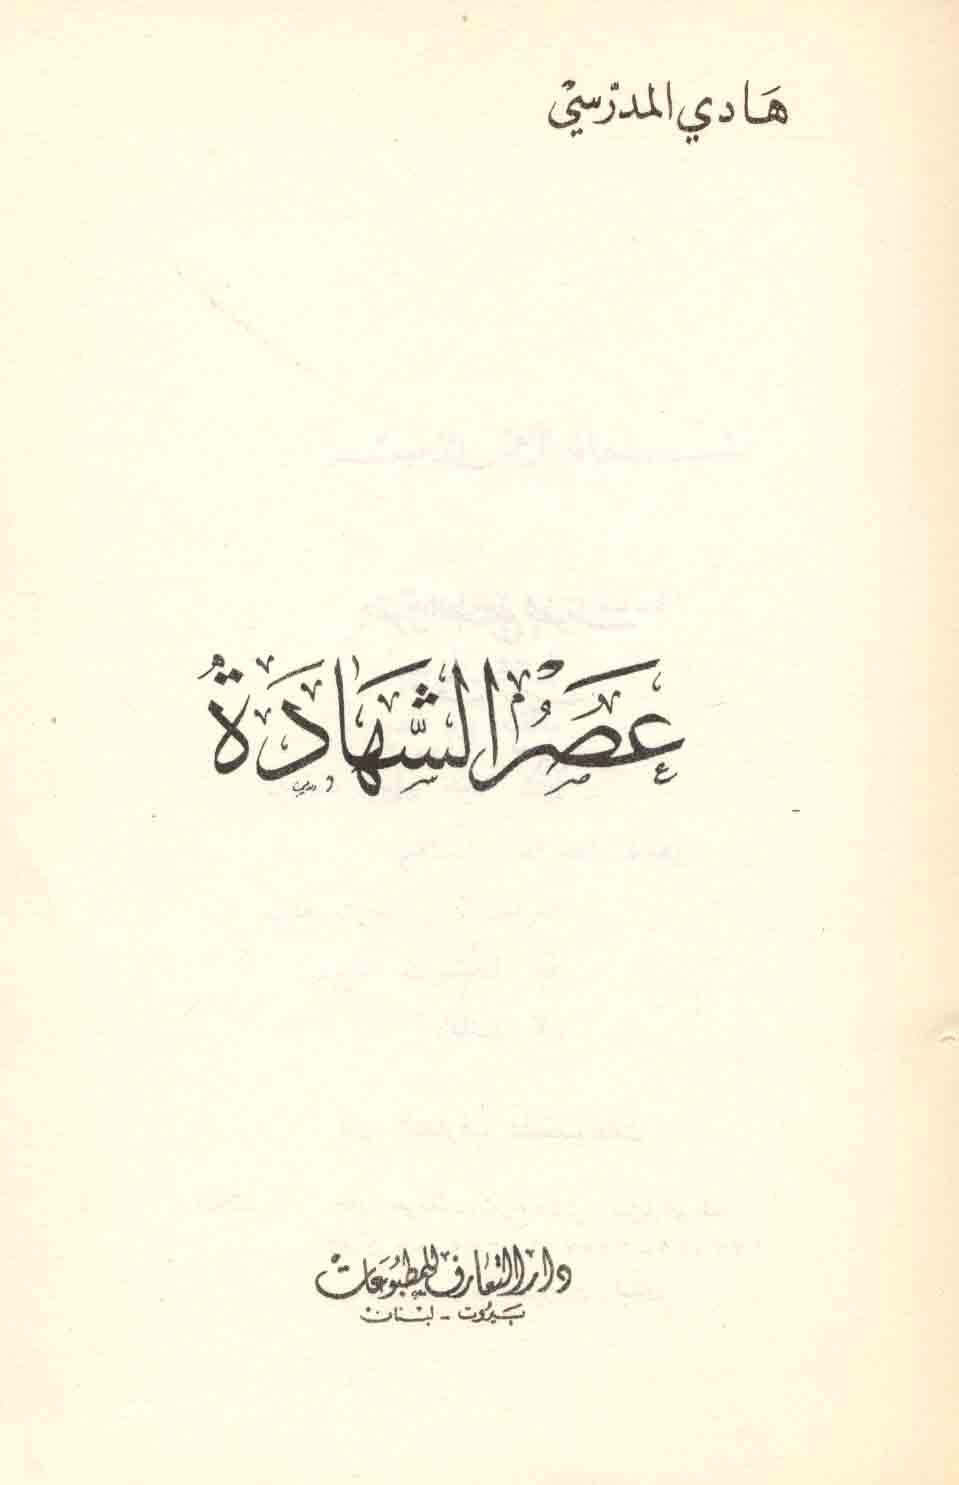 هادي المدرّسي
عَصْرُ الشَّهَادَةُ
دار التعارف للمطبوعات
بيروت - لبنان